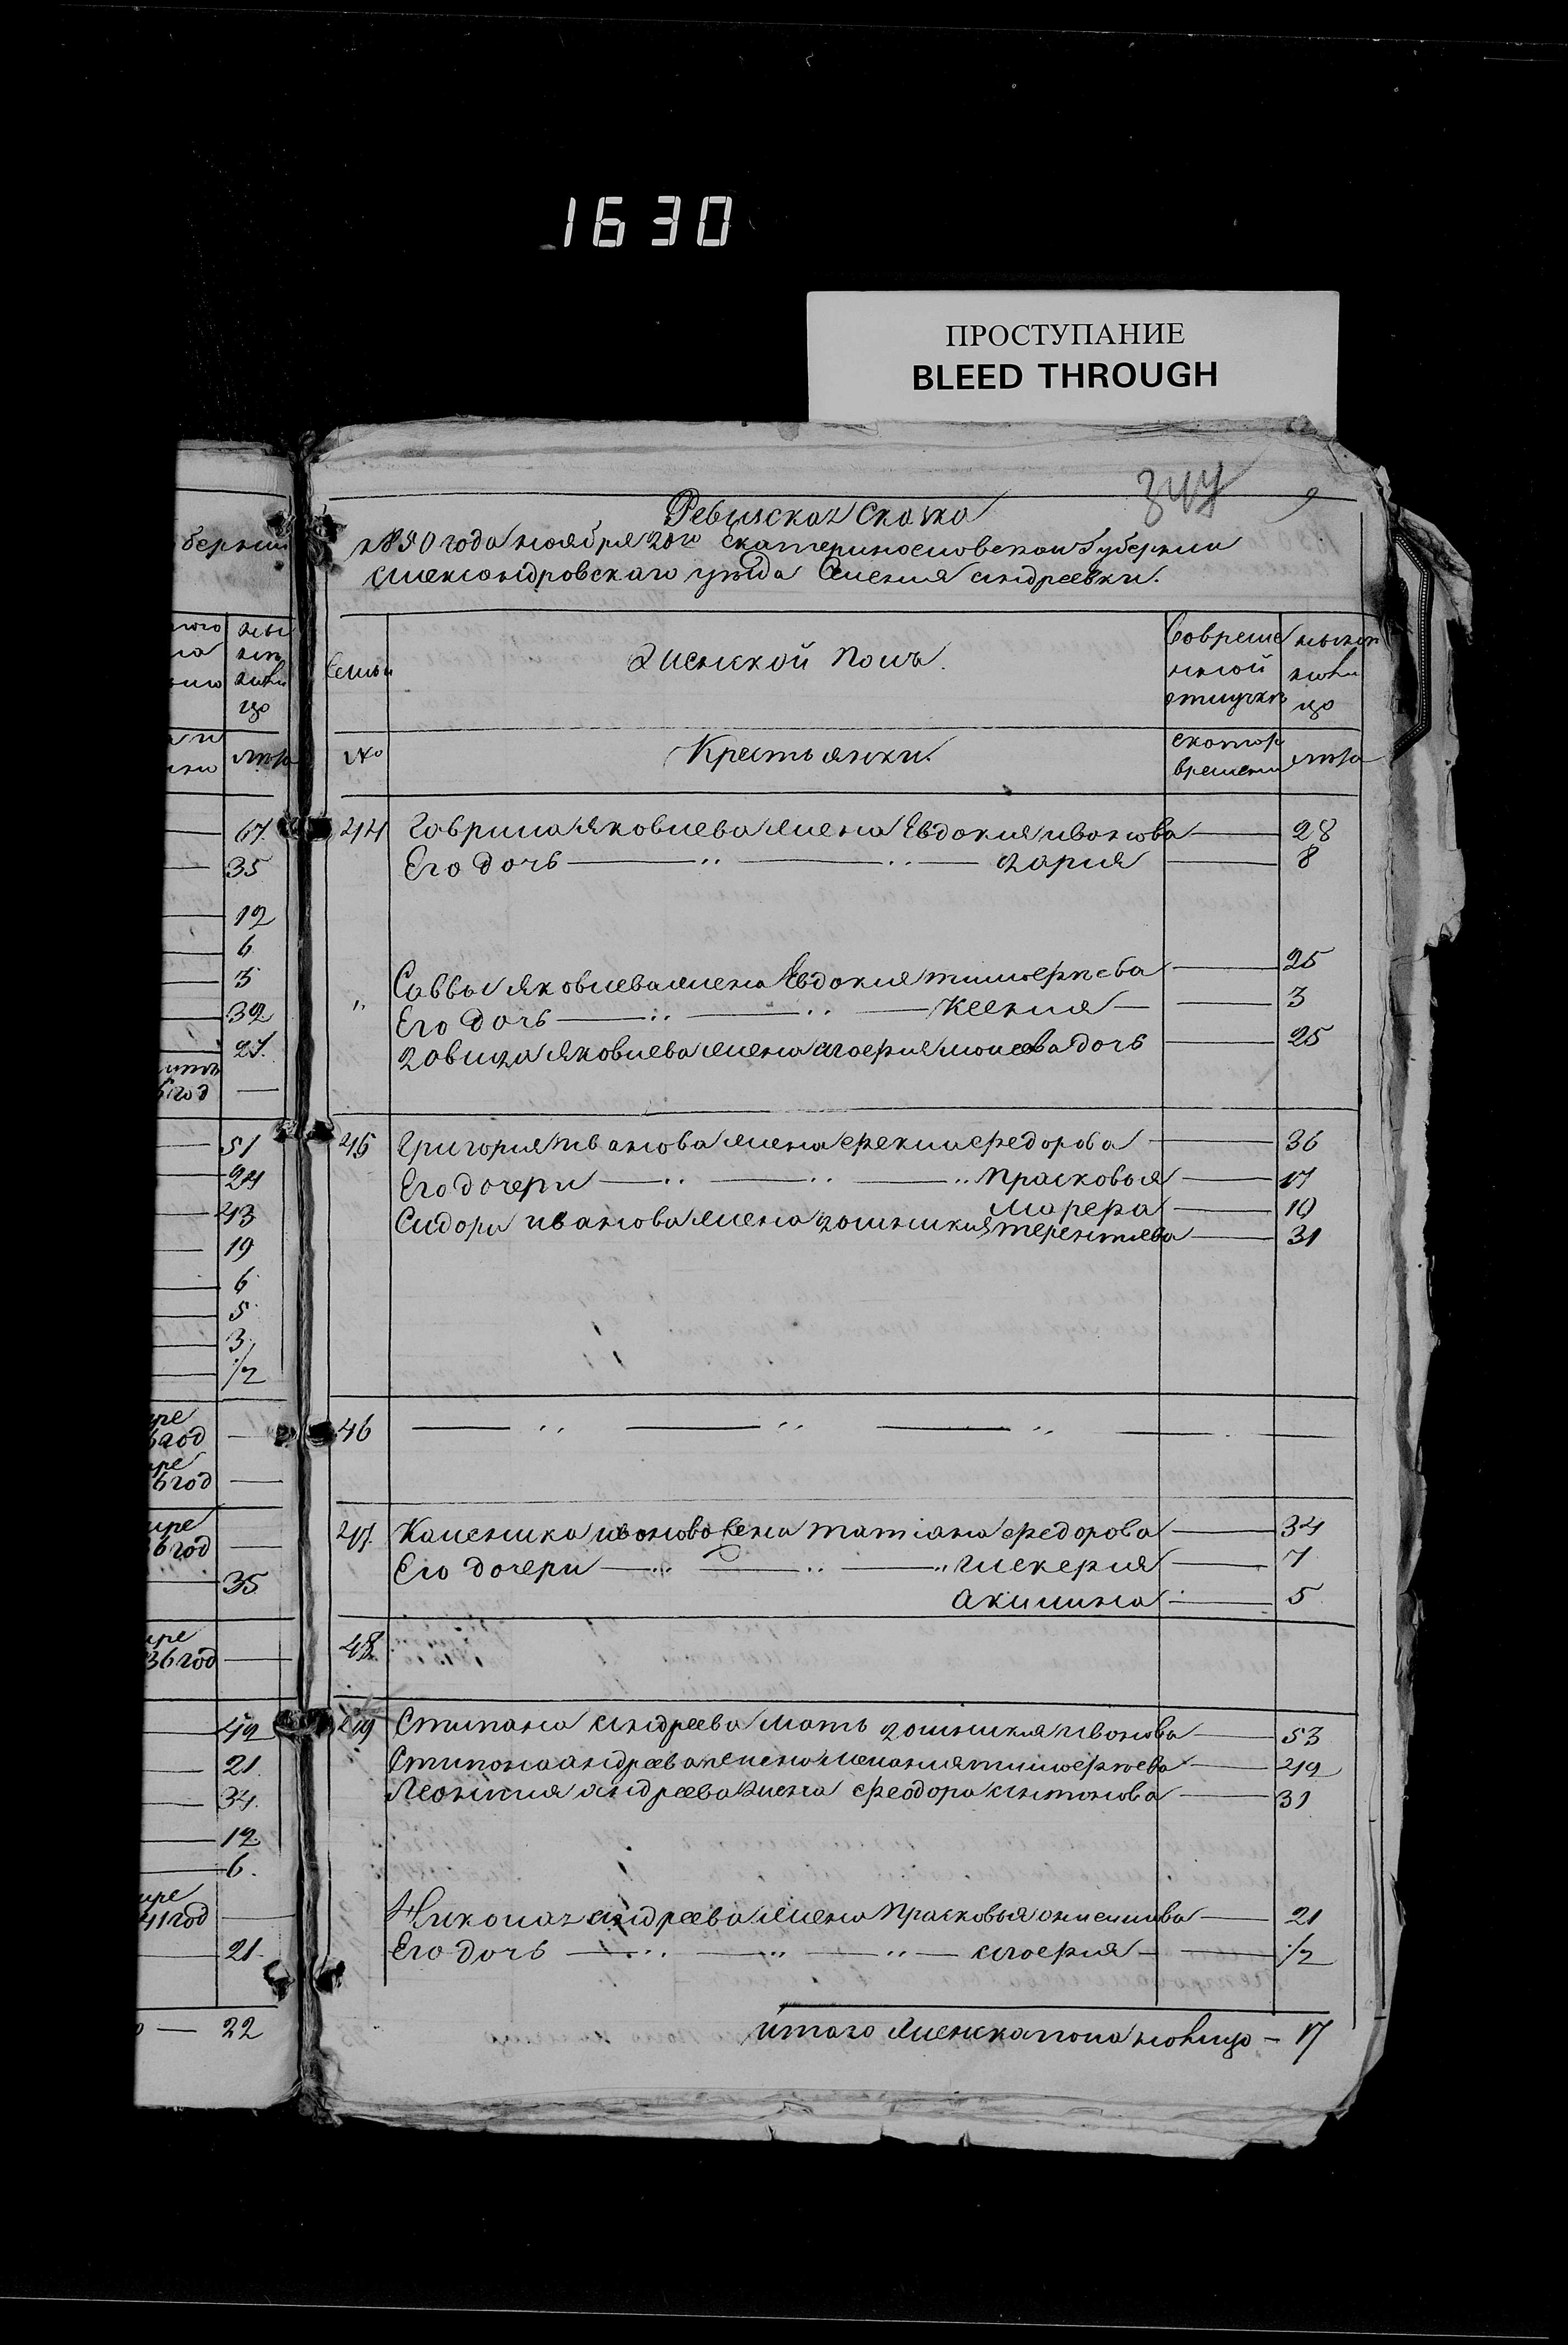 1630
ПРОСТУПАНИЕ
BLEED THROUGH
Ревизская Сказка
1850 года ноября 20го Екатеринославской Губернии
Александровскаго уезда Селения андреевки.
Семьи
Женской полъ.
Во время
ныне
на лицо
№
Крестьянки.
с котор
времени
лета
44 Гаврила Яковлева жена Евдокия иванова 28
Его дочь дария 8
Саввы Яковлева жена Евдокия тимоефева 25
" Его дочь Ксения 3
давида Яковлева жена агоефия дочь 25
45 Григория Иванова жена фекла федорова 36
Его дочери Прасковья 17
марфа 10
Сидора иванова жена домникия терентиева 31
46
47. иванова жена татиана федорова 34
Его дочери гликерия 7
Акилина 5
48
49 Стипана андреева мать домникия иванова 53
Стипана андреева жена мелания тимоефева 42
Леонтия андреева жена феодора антонова 31
Николая андреева жена прасковья 21
Его дочь агоефия 1/2
итого женска пола налицо – 17
берни
67.
35
12
6
3
32
27.
год
51
24
43
19
6
5
3
1/2
год
6 год
6 год
35
36 год
42
21
34.
12
6.
41 год
21.
22